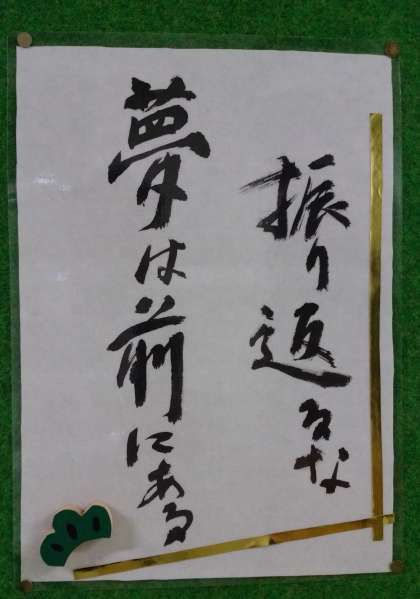 振り返るな
夢は前にある